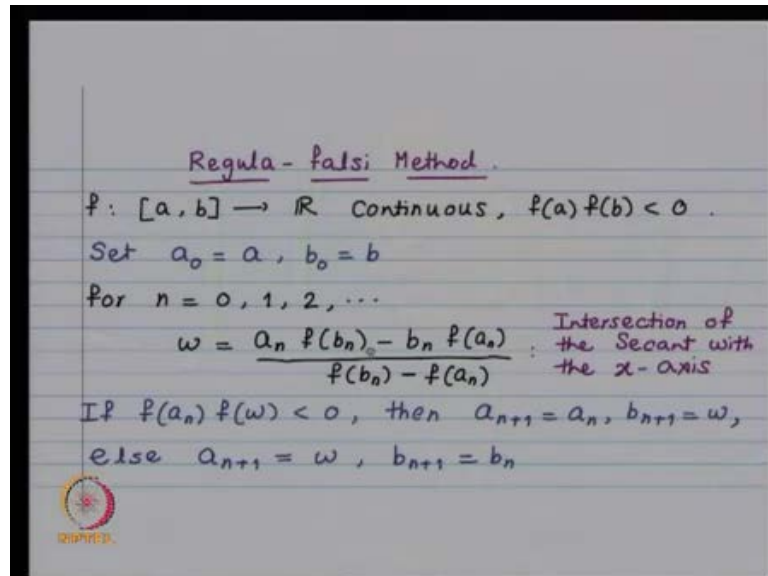 Regula - falsi Method.
f : [a, b] → ℝ Continuous, f(a) f(b) < 0.
Set a₀ = a, b₀ = b
for n = 0, 1, 2, ...
w = (aₙ f(bₙ) - bₙ f(aₙ)) / (f(bₙ) - f(aₙ)) : Intersection of the Secant with the x-axis
If f(aₙ) f(w) < 0, then aₙ₊₁ = aₙ, bₙ₊₁ = w,
else aₙ₊₁ = w, bₙ₊₁ = bₙ
NPTEL